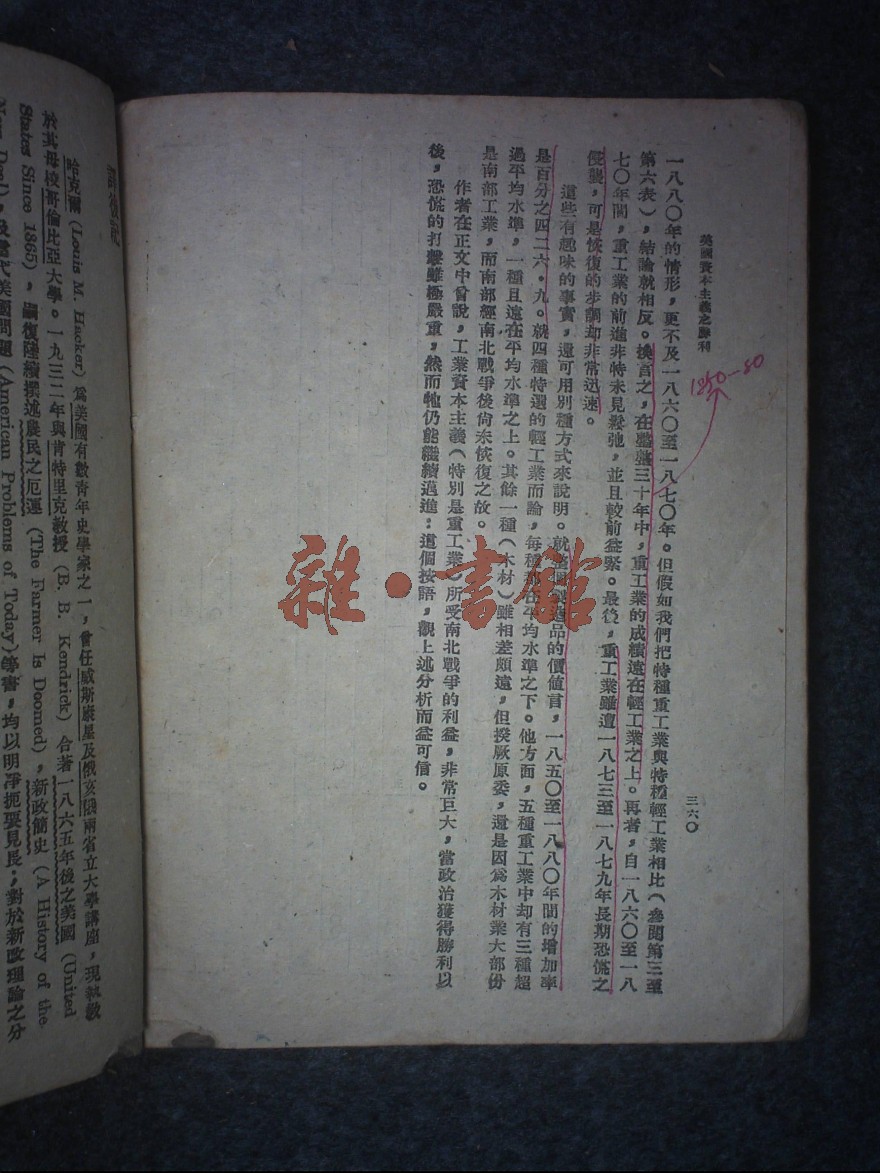 美國資本主義之勝利
三六〇
1850—80
一八八〇年的情形，更不及一八六〇至一八七〇年。但假如我們把特種重工業與特種輕工業相比（參閱第三至
第六表），結論就相反。換言之，在整整三十年中，重工業的成績遠在輕工業之上。再者，自一八六〇至一八
七〇年間，重工業的前進非特未見鬆弛，並且較前益緊。最後，重工業雖遭一八七三至一八七九年長期恐慌之
侵襲，可是恢復的步調却非常迅速。
這些有趣味的事實，還可用別種方式來說明。就整個製造品的價值言，一八五〇至一八八〇年間的增加率
是百分之四二六・九。就四種特選的輕工業而論，每種都在平均水準之下。他方面，五種重工業中却有三種超
過平均水準，一種且遠在平均水準之上。其餘一種（木材）雖相差頗遠，但揆厥原委，還是因爲木材業大部份
是南部工業，而南部經南北戰爭後尙未恢復之故。
作者在正文中曾說，工業資本主義（特別是重工業）所受南北戰爭的利益，非常巨大，當政治獲得勝利以
後，恐慌的打擊雖極嚴重，然而牠仍能繼續邁進：這個按語，觀上述分析而益可信。
譯後記
哈克爾（Louis M. Hacker）爲美國有數青年史學家之一，曾任威斯康星及俄亥俄兩省立大學講座，現執教
於其母校哥倫比亞大學。一九三二年與肯特里克教授（B. B. Kendrick）合著一八六五年後之美國（United
States Since 1865），嗣復陸續撰述農民之厄運（The Farmer Is Doomed），新政簡史（A History of the
New Deal），及當代美國問題（American Problems of Today）等書，均以明淨扼要見長；對於新政理論之分
雜・書館